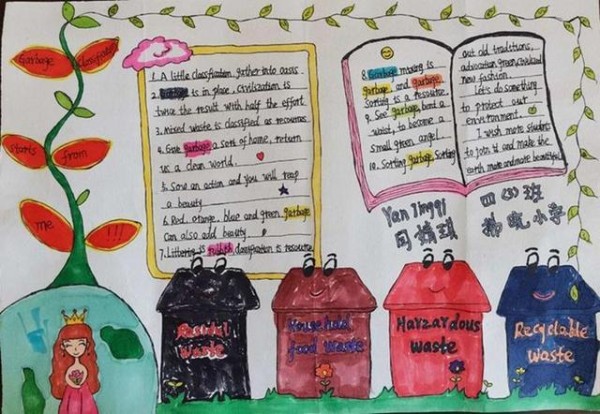 Garbage classification
starts from
me !!!
1. A little classification, gather into oasis
2. is in place, civilization is
twice the result with half the effort
3. Mixed waste is classified as resources
4. Give garbage a sort of home, return
us a clean world.
5. Sow an action and you will reap
a beauty
6. Red, orange, blue and green, garbage
Can also add beauty
7. Littering is rubbish classification is resource
8. Garbage mixing is
garbage and garbage
Sorting is a resource
9. See garbage, bend a
waist, to become a
small green angel
10. Sorting garbage, Sorting
out old traditions,
advocating green, civilized
new fashion.
Let's do something
to protect our
environment.
I wish more students
to join it and make the
earth more and more beautiful
Yan Jingqi
四(3)班
拂晓小学
Residual
waste
Household
food waste
Harzardous
waste
Recyclable
waste